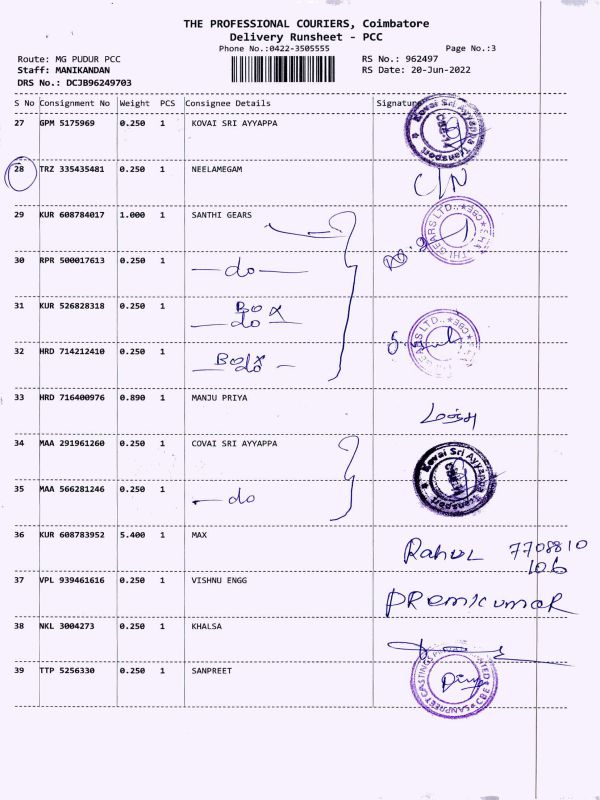 THE PROFESSIONAL COURIERS, Coimbatore
Delivery Runsheet - PCC
Phone No.:0422-3505555
Page No.:3
Route: MG PUDUR PCC
RS No.: 962497
Staff: MANIKANDAN
RS Date: 20-Jun-2022
DRS No.: DCJB96249703
S No Consignment No Weight PCS Consignee Details Signature
27 GPM 5175969 0.250 1 KOVAI SRI AYYAPPA
Kovai Sri Ayyappa Transport
28 TRZ 335435481 0.250 1 NEELAMEGAM
29 KUR 608784017 1.000 1 SANTHI GEARS
30 RPR 500017613 0.250 1 — do —
31 KUR 526828318 0.250 1 BOX
— do —
32 HRD 714212410 0.250 1 Box
— do —
33 HRD 716400976 0.890 1 MANJU PRIYA
34 MAA 291961260 0.250 1 COVAI SRI AYYAPPA
Kovai Sri Ayyappa Transport
35 MAA 566281246 0.250 1 — do
36 KUR 608783952 5.400 1 MAX Rahul 7708810
106
37 VPL 939461616 0.250 1 VISHNU ENGG PREMKUMAR
38 NKL 3004273 0.250 1 KHALSA
39 TTP 5256330 0.250 1 SANPREET